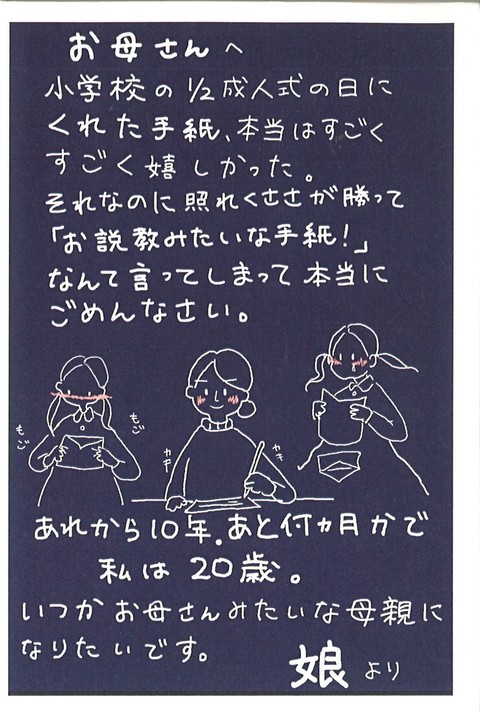 お母さんへ
小学校の1/2成人式の日に
くれた手紙、本当はすごく
すごく嬉しかった。
それなのに照れくささが勝って
「お説教みたいな手紙!」
なんて言ってしまって本当に
ごめんなさい。
もご
もご
カキ
カキ
あれから10年。あと何ヵ月かで
私は20歳。
いつかお母さんみたいな母親に
なりたいです。
娘より